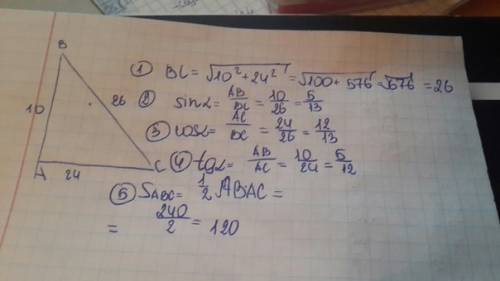 B
10
26
A
24
C
① BC = √10²+24² = √100+576 = √676 = 26
② sinα = AB/BC = 10/26 = 5/13
③ cosα = AC/BC = 24/26 = 12/13
④ tgα = AB/AC = 10/24 = 5/12
⑤ SABC = 1/2 AB·AC =
= 240/2 = 120